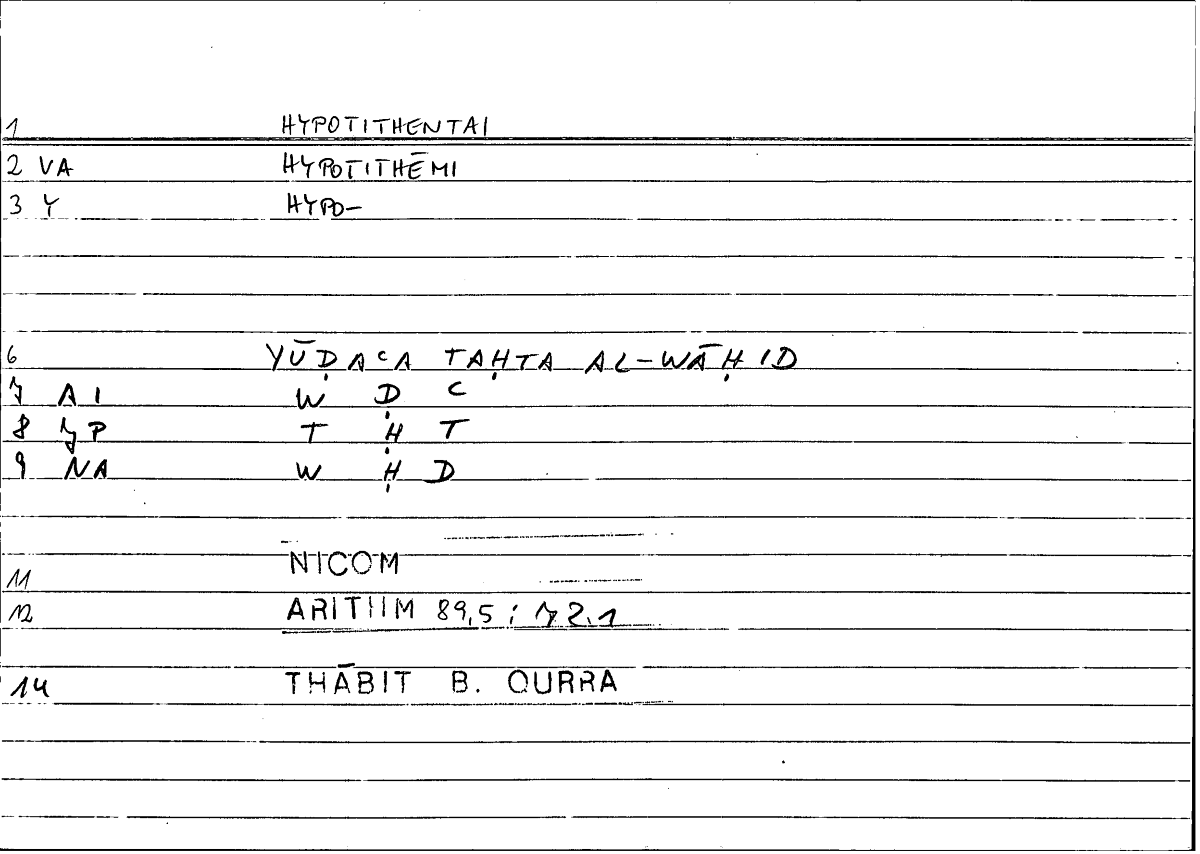 1 HYPOTITHENTAI
2 VA HYPOTITHĒMI
3 Y HYPO-
6 YŪḌAʿA TAḤTA AL-WĀḤID
7 AI W Ḍ ʿ
8 YP T Ḥ T
9 NA W Ḥ D
NICOM
11
12 ARITHM 89,5; 72.1
14 THĀBIT B. QURRA